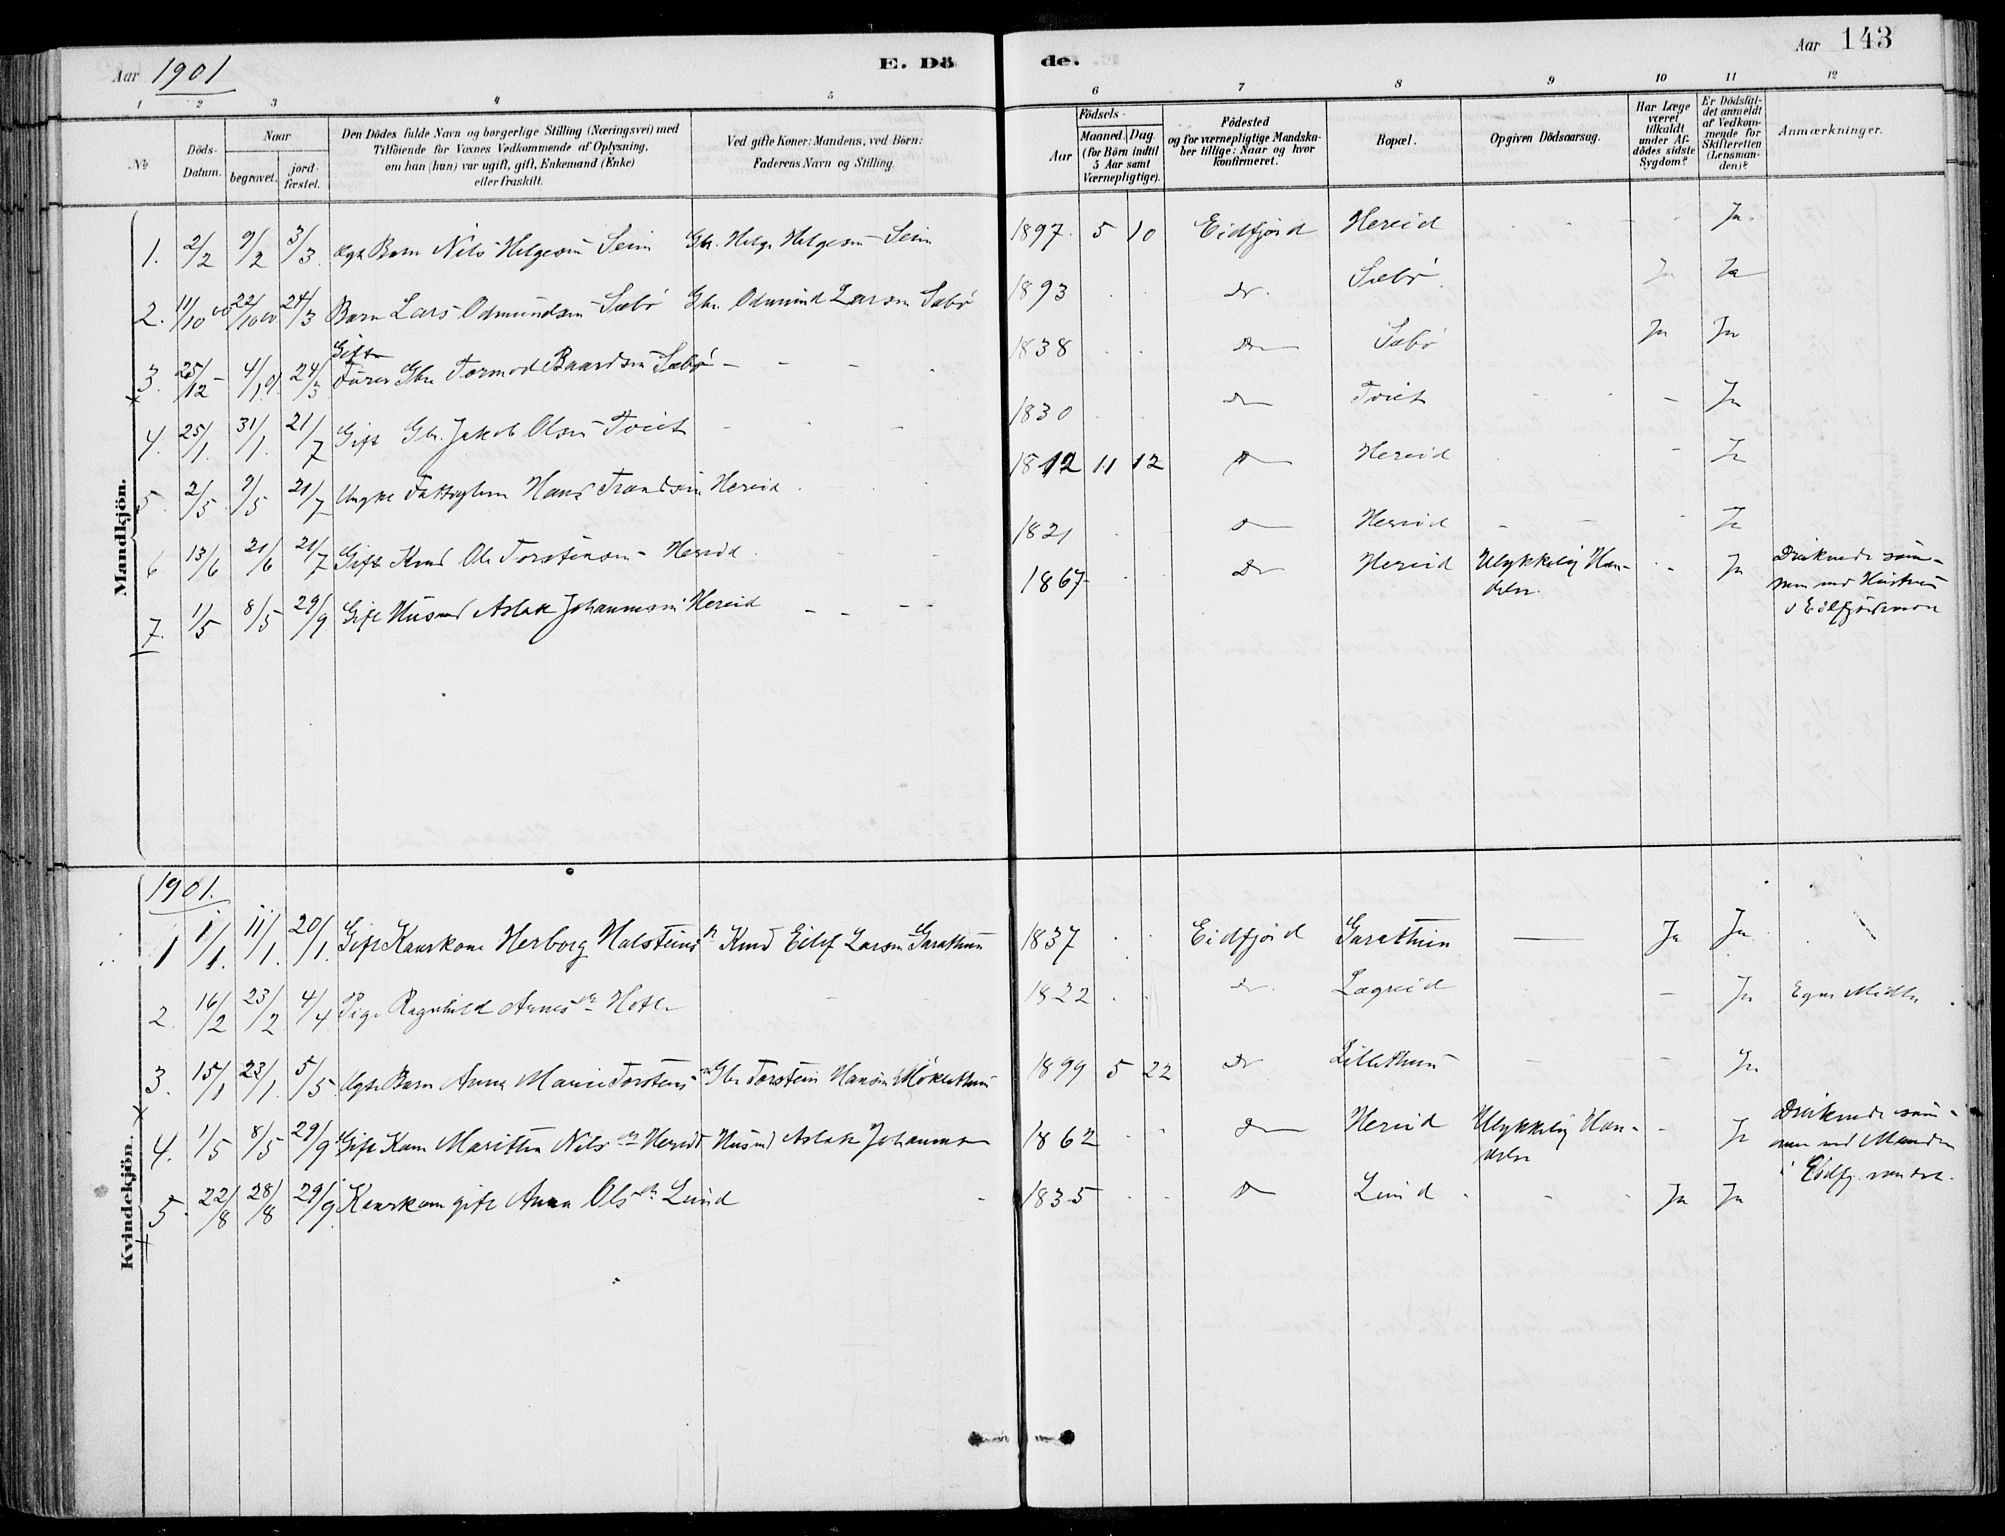 Aar 1901 E. Dö de. Aar 143
1 2 3 4 5 6 7 8 9 10 11 12
№
Döds-Datum.
Naar
begravet.
jord-fæstet.
Den Dödes fulde Navn og borgerlige Stilling (Næringsvei) med
Tilföiende for Voxnes Vedkommende af Oplysning,
om han (hun) var ugift, gift, Enkemand (Enke)
eller fraskilt.
Ved gifte Koner: Mandens, ved Börn:
Faderens Navn og Stilling.
Födsels-
Aar
Maaned. Dag.
(for Börn indtil
5 Aar samt
Værnepligtige).
Födested
og for værnepligtige Mandska-
ber tillige: Naar og hvor
konfirmeret.
Bopæl.
Opgiven Dödsaarsag.
Har Læge
været
tilkaldt
under Af-
dödes sidste
Sygdom?
Er Dödsfal-
det anmeldt
af Vedkom-
mende for
Skifteretten
(Lensman-
den)?
Anmærkninger.
Mandkjön.
1. 2/2 9/2 3/3 Barn Nils Helgesen Seim Gbr. Helge Helgesen Seim 1897. 5 10 Eidfjord Hereid - - - - Ja.
2. 11/10 00 22/10 00 24/3 Barn Lars Odmundsen Sæbø Gbr. Odmund Larsen Sæbø 1893 do. Sæbø Ja Ja
Gift
3. 25/12 4/1 01. 24/3 Gbr Tormod Baardsen Sæbø - - - 1838 do Sæbø Ja Ja
4. 25/1. 31/1. 21/7 Gift Gbr. Jakob Olsen Tveit - - - 1830 do Tveit - - - Ja
5. 2/5 9/5 21/7 Ungk. Hans Hereid 1812 11 12 do Hereid - Ja
6 13/6 21/6 21/7 Gift Ole Torstensen Hereid 1821 do Hereid - - - Ja
7. 1/5 8/5 29/9 Gift Husmd Aslak Johannesen Hereid - - - - 1867 do Hereid Ulykkelig Hæn-
delse. - - Ja Druknede sam-
men med Hustru
i Eidfjordvandet
Kvindekjön.
1901.
1 1/1. 11/1. 20/1. Gift Kaarkone Herborg Halsteinsdr Eilef Larsen Garathun 1837 Eidfjord Garathun — Ja Ja
2. 16/2 23/2 4/4 Pige Ragnhild Arnesdr - 1822 do. Lægreid - Ja
3. 15/1 23/1. 5/5. Barn Anna Marie Torsteinsdr Gbr Torstein Hansen Møklethun 1899 5 22 do Lillethun - - - Ja
4. 1/5 8/5 29/9 Gift Kone Maritta Nilsdr Hereid Husmd Aslak Johannesen 1862 do Hereid Ulykkelig Hæn-
delse - Ja Druknede sam-
men med Manden
i Eidfj. vandet.
5. 22/8 28/8 29/9. Kaarkone gift Anna Olsdr Lund - 1835 do Lund - - - Ja Ja